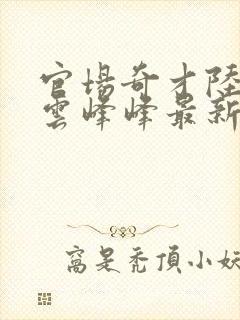 官場奇才陸
雲峰峰最新
窩是禿頂小妖